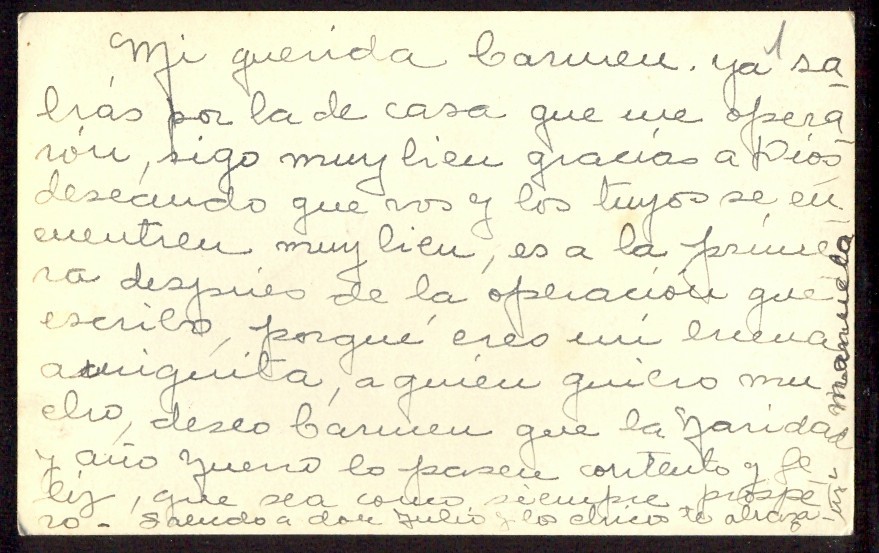 Mi querida Carmen. ya sa-
brás por la de casa que me opera-
rón, sigo muy bien gracias a Dios
deseando que vos y los tuyos se en-
cuentren muy bien, es a la prime-
ra despúes de la operación que
escribo, porqué eres mi buena
amiguita, a quién quiero mu-
cho, deseo Carmen que la Navidad
y año Nuevo lo pasen contento y fe-
liz, que sea como siempre prospe-
ro - Saludo a don Julio y los chicos te abraza-
Manuela